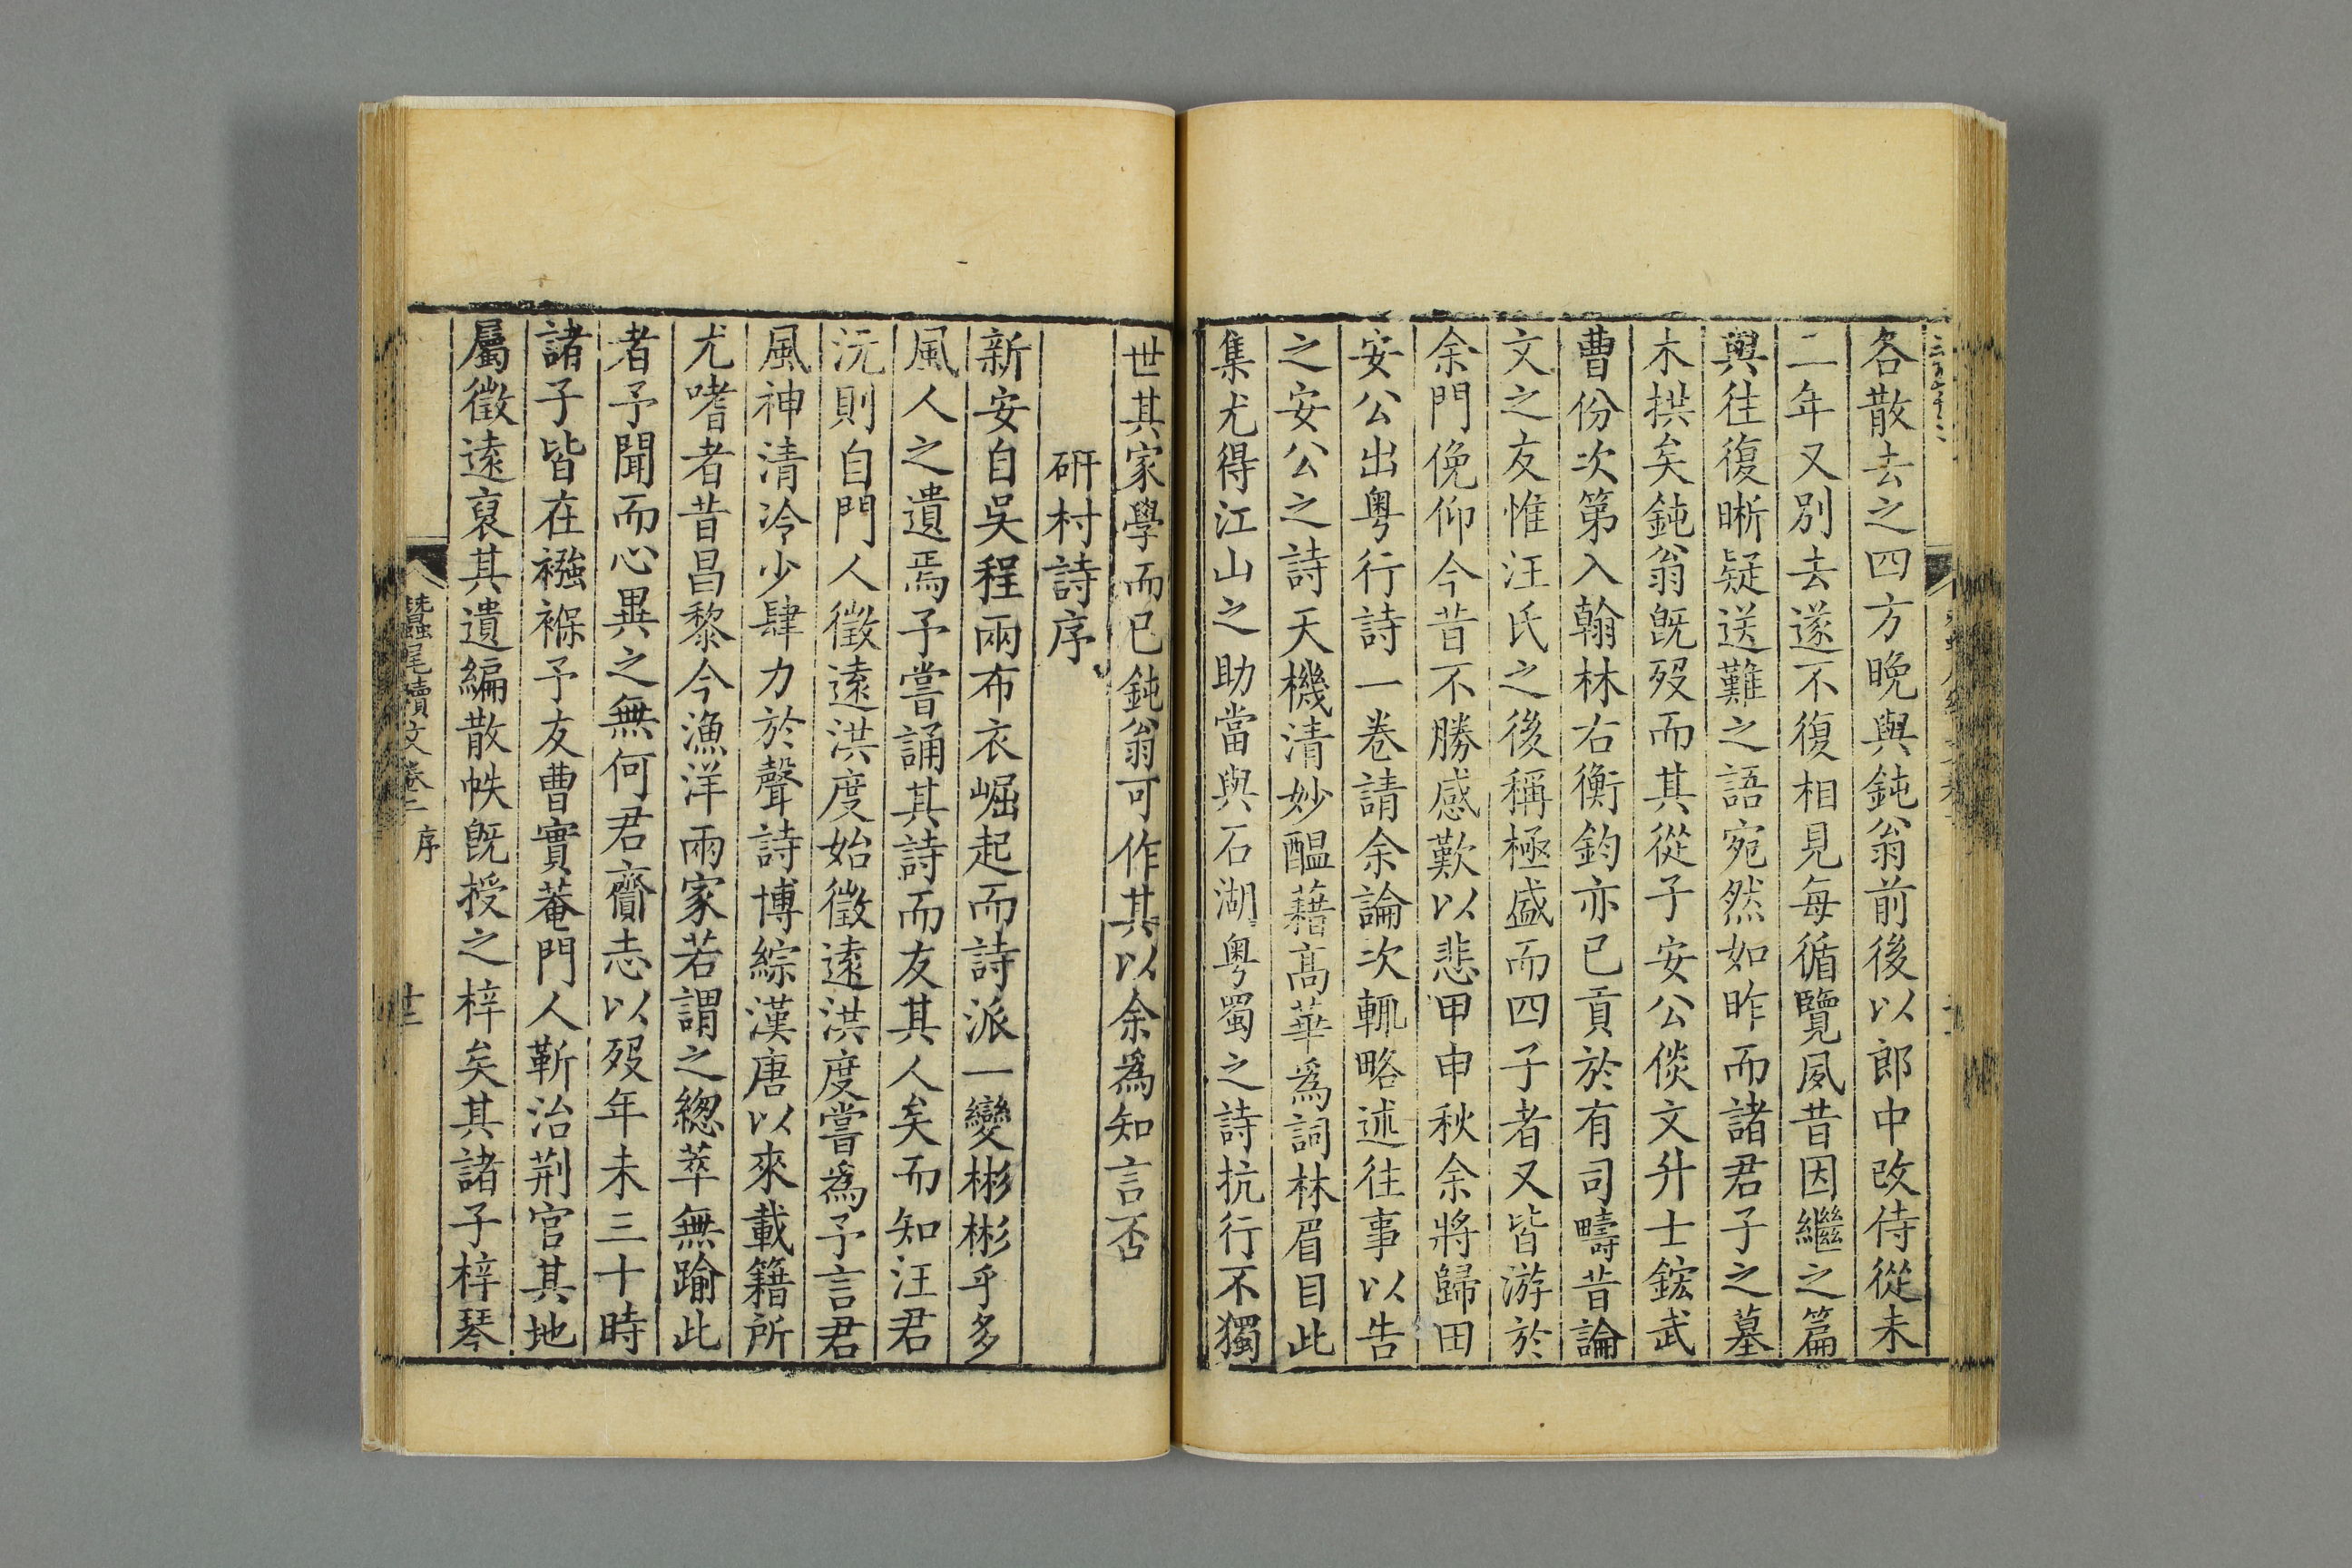 各散去之四方晚與鈍翁前後以郎中改侍從未
二年又別去遂不復相見每循覽夙昔因繼之篇
與往復晰疑送難之語宛然如昨而諸君子之墓
木拱矣鈍翁旣歿而其從子安公倓文升士鋐武
曹份次第入翰林右衡鈞亦已貢於有司疇昔論
文之友惟汪氏之後稱極盛而四子者又皆游於
余門俛仰今昔不勝感歎以悲甲申秋余將歸田
安公出粤行詩一卷請余論次輒略述往事以告
之安公之詩天機清妙醞藉高華爲詞林眉目此
集尤得江山之助當與石湖粤蜀之詩抗行不獨
世其家學而已鈍翁可作其以余爲知言否
硏村詩序
新安自吳程兩布衣崛起而詩派一變彬彬乎多
風人之遺焉予嘗誦其詩而友其人矣而知汪君
沅則自門人徵遠洪度始徵遠洪度嘗爲予言君
風神清泠少肆力於聲詩博綜漢唐以來載籍所
尤嗜者昔昌黎今漁洋兩家若謂之總萃無踰此
者予聞而心異之無何君齎志以歿年未三十時
諸子皆在襁褓予友曹實菴門人靳治荊官其地
屬徵遠裒其遺編散帙旣授之梓矣其諸子梓琴
蠶尾續文卷二 序